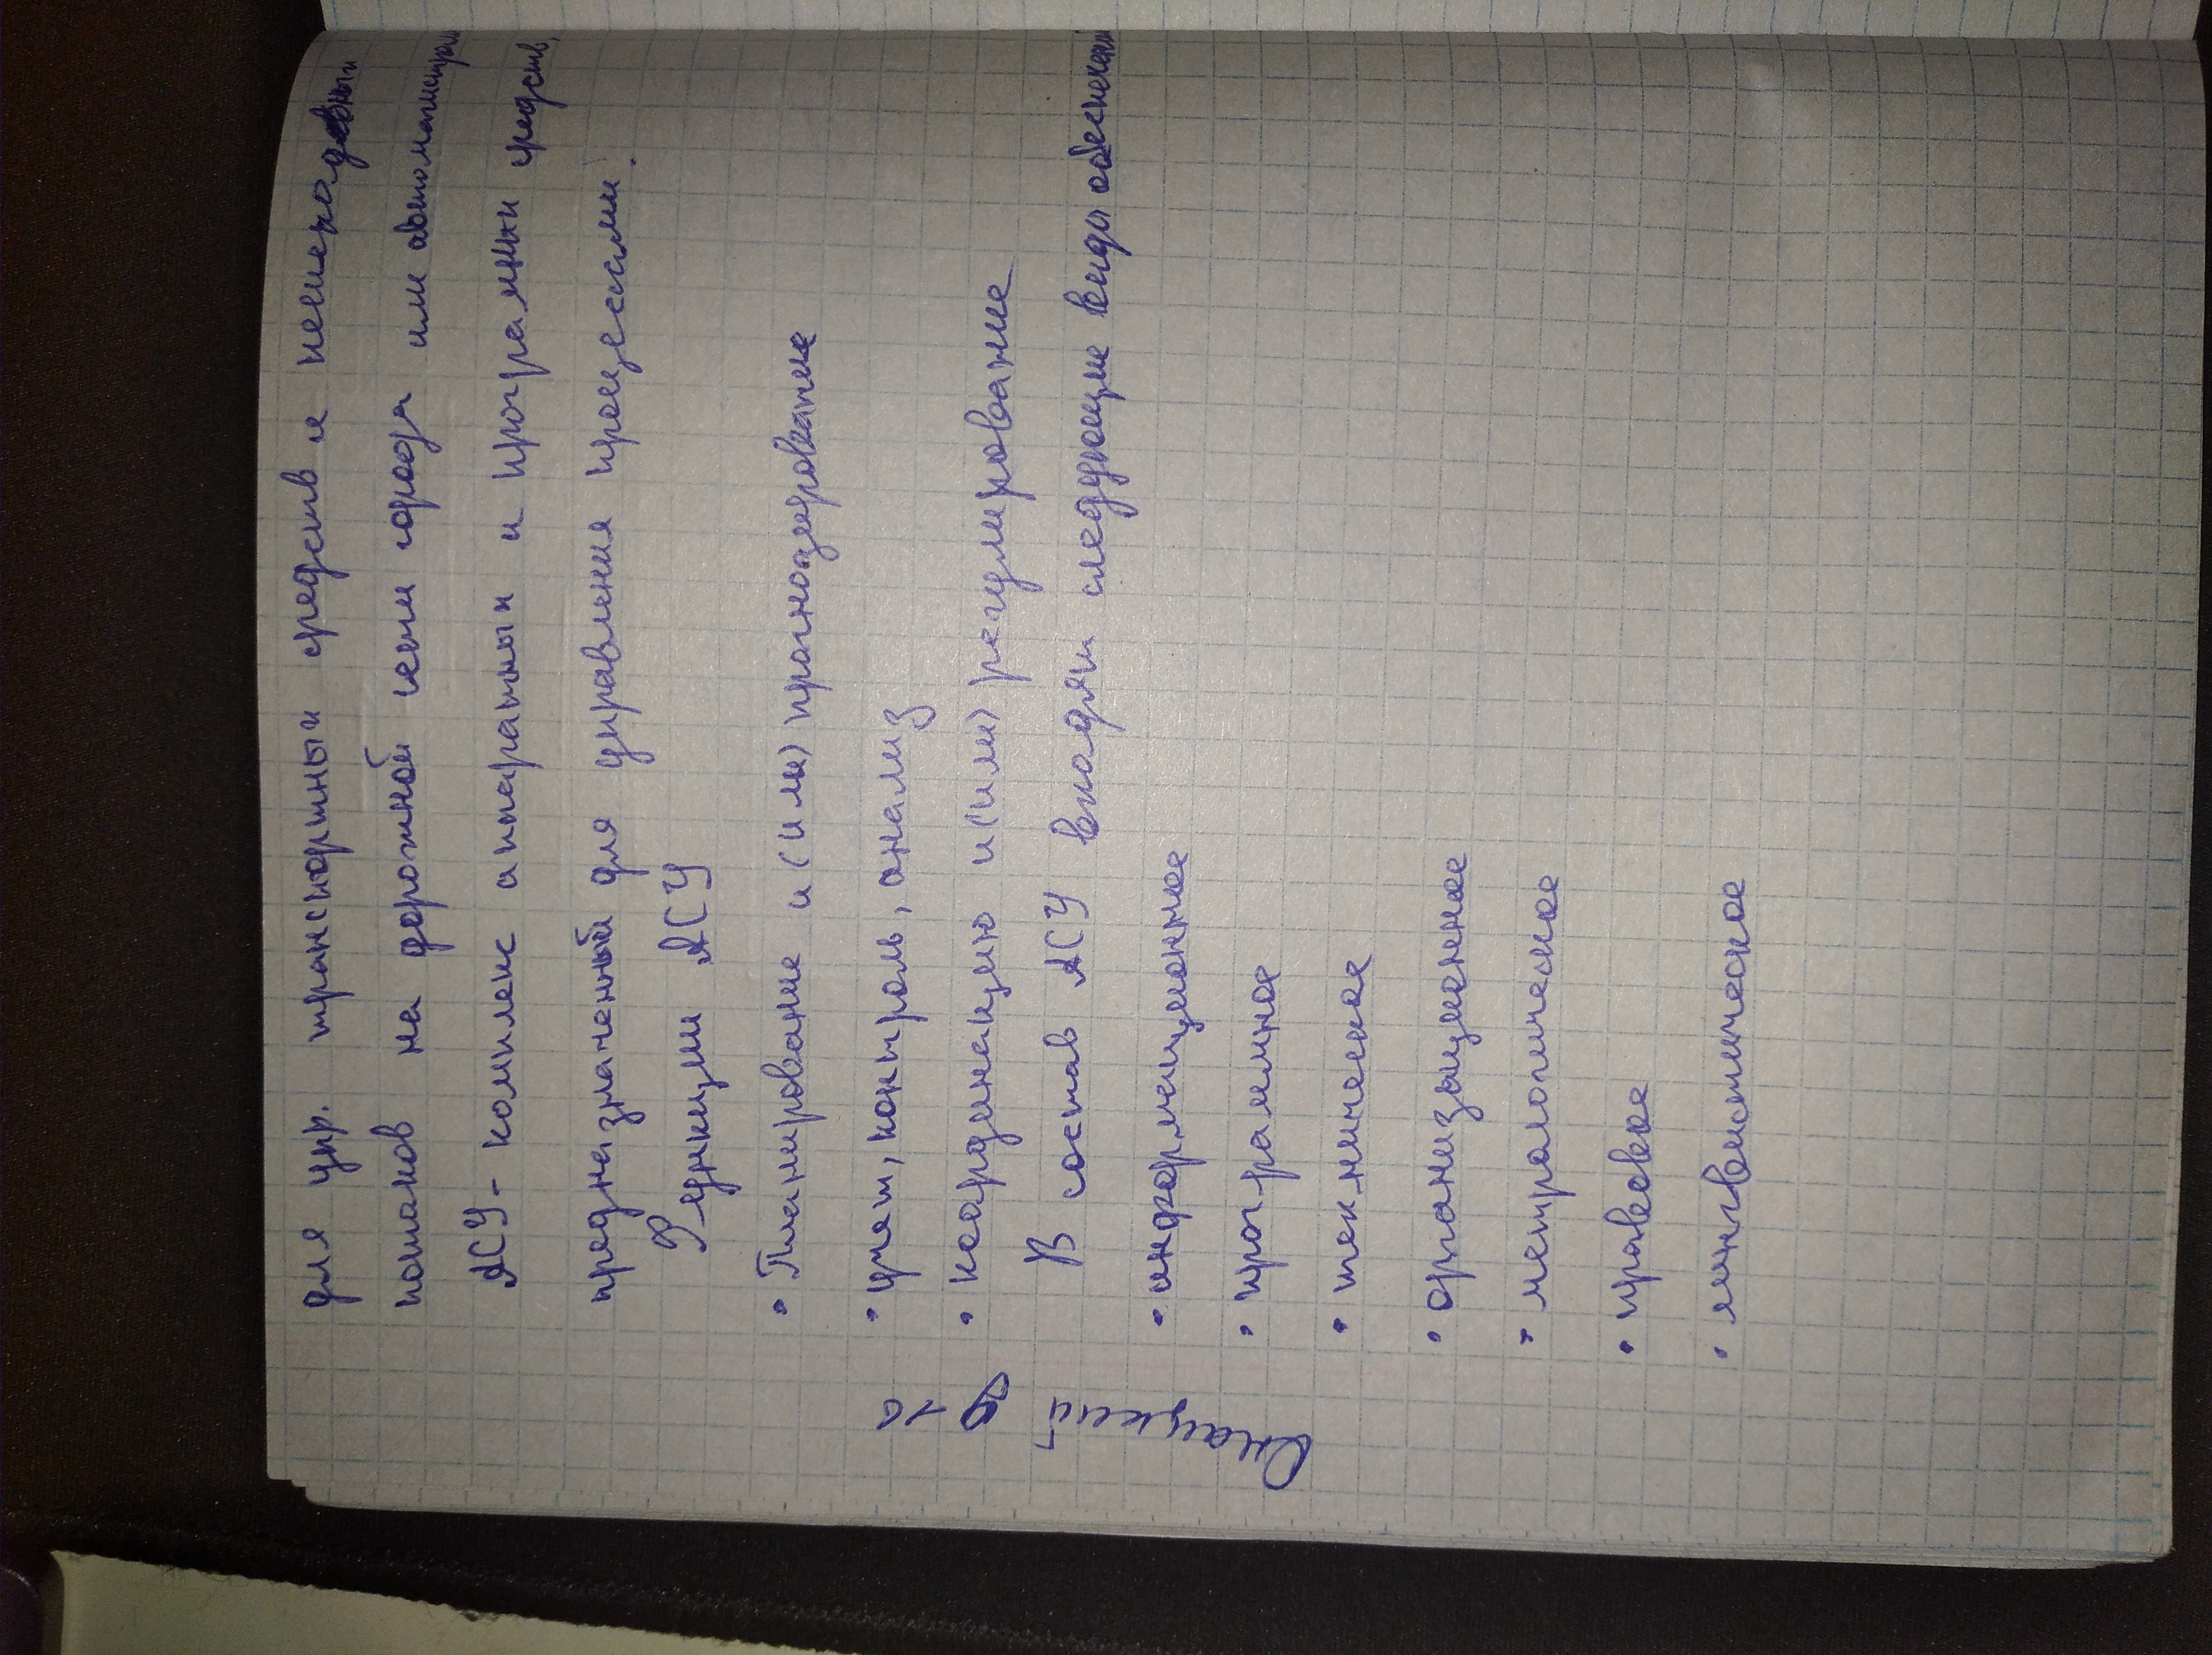 для упр. транспортных средств и пешеходных
потоков на дорожной сети города или автомагистрали
АСУ - комплекс аппаратных и програмных средств,
предназначенный для управления процессами.
Функции АСУ
• Планирование и (или) прогнозирование
• учет, контроль, анализ
• координацию и(или) регулирование
В состав АСУ входят следующие виды обеспечений
• информационное
• програмное
• техническое
• организационное
• метрологическое
• правовое
• лингвистическое